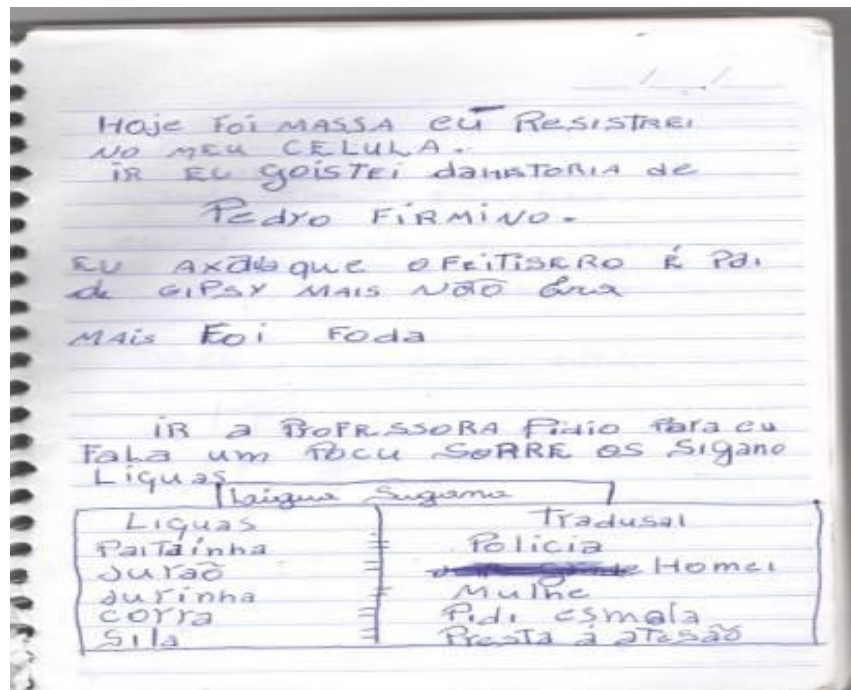 Hoje Foi MASSA eu ResistRei
NO MEU CELULA.
iR Eu goisTEi daHisTORIA de
Pedro FiRMiNO.
EU AXava que OFEiTiSERO É Pai
de GIPSY MAIS NÃO éra
MAis Foi Foda
iR a PROFRSSORA Pidio Para eu
Fala um POCU SORRE OS Sigano
Liguas
Laigua Sugana
Liguas Tradusal
PaiTainha = Policia
Jurão = Homei
Jurinha = Mulhe
Corra = Pidi esmola
Sila = Presta á atesão